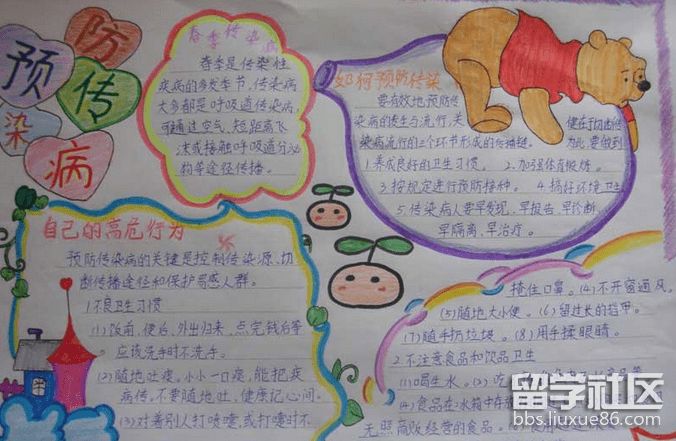 预防传染病
春季传染病
春季是传染性
疾病的多发季节,传染病
大多都是呼吸道传染病,
可通过空气、短距离飞
沫或接触呼吸道分泌
物等途径传播。
如何预防传染
要有效地预防传
染病的发生与流行,关
染病流行的三个环节形成的传播链。
为此,要做到
1.养成良好的卫生习惯。 2.加强体育锻炼。
3.按规定进行预防接种。 4.搞好环境卫生
5.传染病人要早发现,早报告,早诊断,
早隔离,早治疗。
自己的高危行为
预防传染病的关键是控制传染源、切
断传播途径和保护易感人群。
1.不良卫生习惯
(1)饭前、便后、外出归来、点完钱后等
应该洗手时不洗手。
(2)随地吐痰。小小一口痰,能把疾
病传,不要随地吐,健康记心间。
(3)对着别人打喷嚏,或打嚏时不
捂住口鼻。(4)不开窗通风。
(5)随地大小便。(6)留过长的指甲。
(7)随手扔垃圾。(8)用手揉眼睛。
2.不注意食品和饮品卫生
(1)喝生水。(2)吃
(4)食品在冰箱中存
无照商贩经营的食品。
留学社区
bbs.liuxue86.com